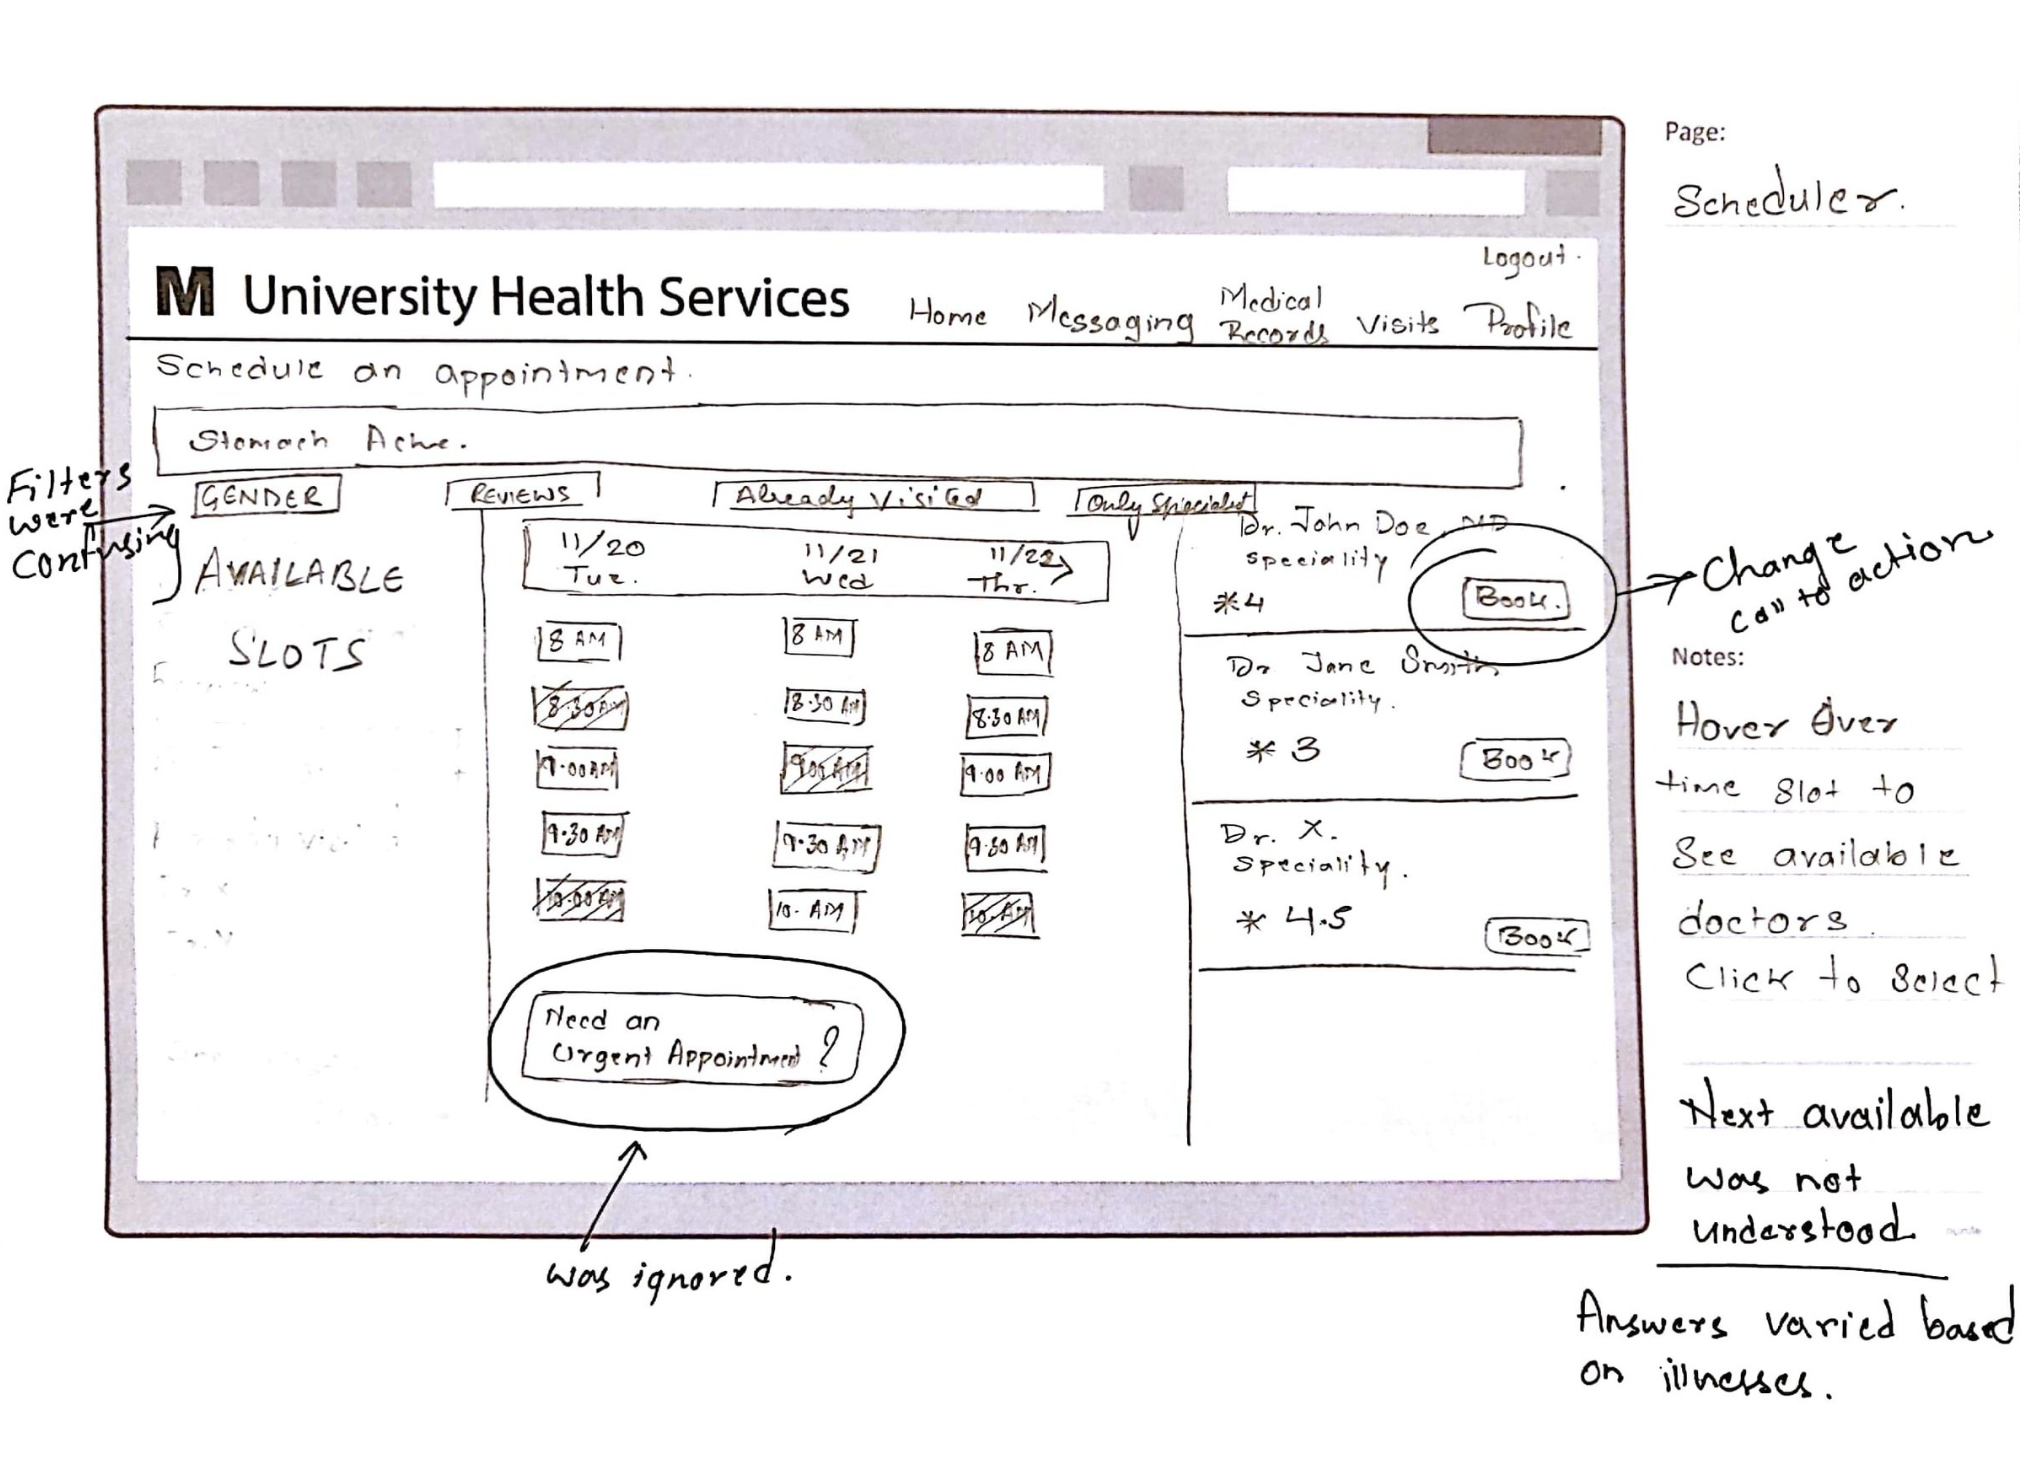 Page:
Scheduler.
Logout.
M University Health Services
Home Messaging Medical Records Visits Profile
Schedule an appointment.
Stomach Ache.
Filters
were
confusing
GENDER
REVIEWS
Already Visited
Only Specialist
AVAILABLE
SLOTS
11/20 11/21 11/22
Tue. Wed Thr.
8 AM 8 AM 8 AM
8.30 AM 8.30 AM 8.30 AM
9.00 AM 9.00 AM 9.00 AM
9.30 AM 9.30 AM 9.30 AM
10.00 AM 10. AM 10. AM
Need an
Urgent Appointment ?
was ignored.
Dr. John Doe, MD
Speciality
*4
Book.
Dr Jane Smith
Speciality.
* 3
Book
Dr. X.
Speciality.
* 4.5
Book
Change
call to action
Notes:
Hover Over
time slot to
See available
doctors.
Click to select
Next available
was not
understood
Answers varied based
on illnesses.